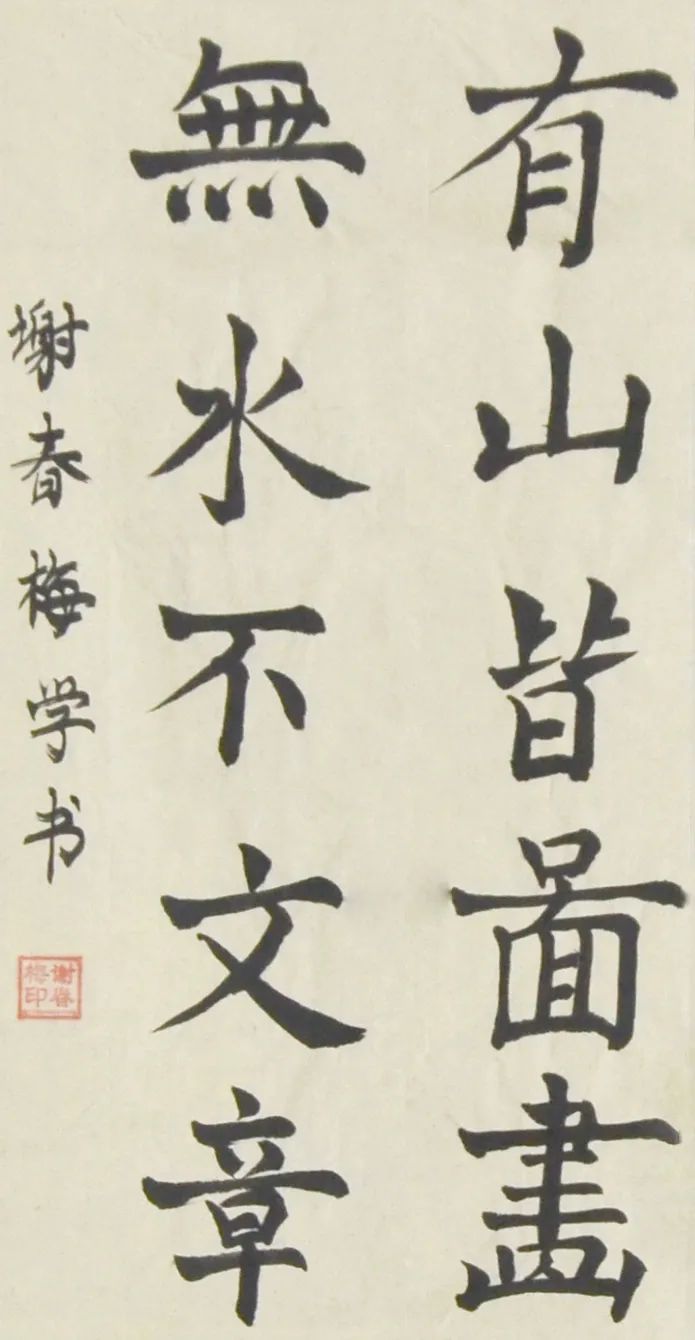 有山皆啚畫
無水不文章
謝春梅学书
谢春梅印